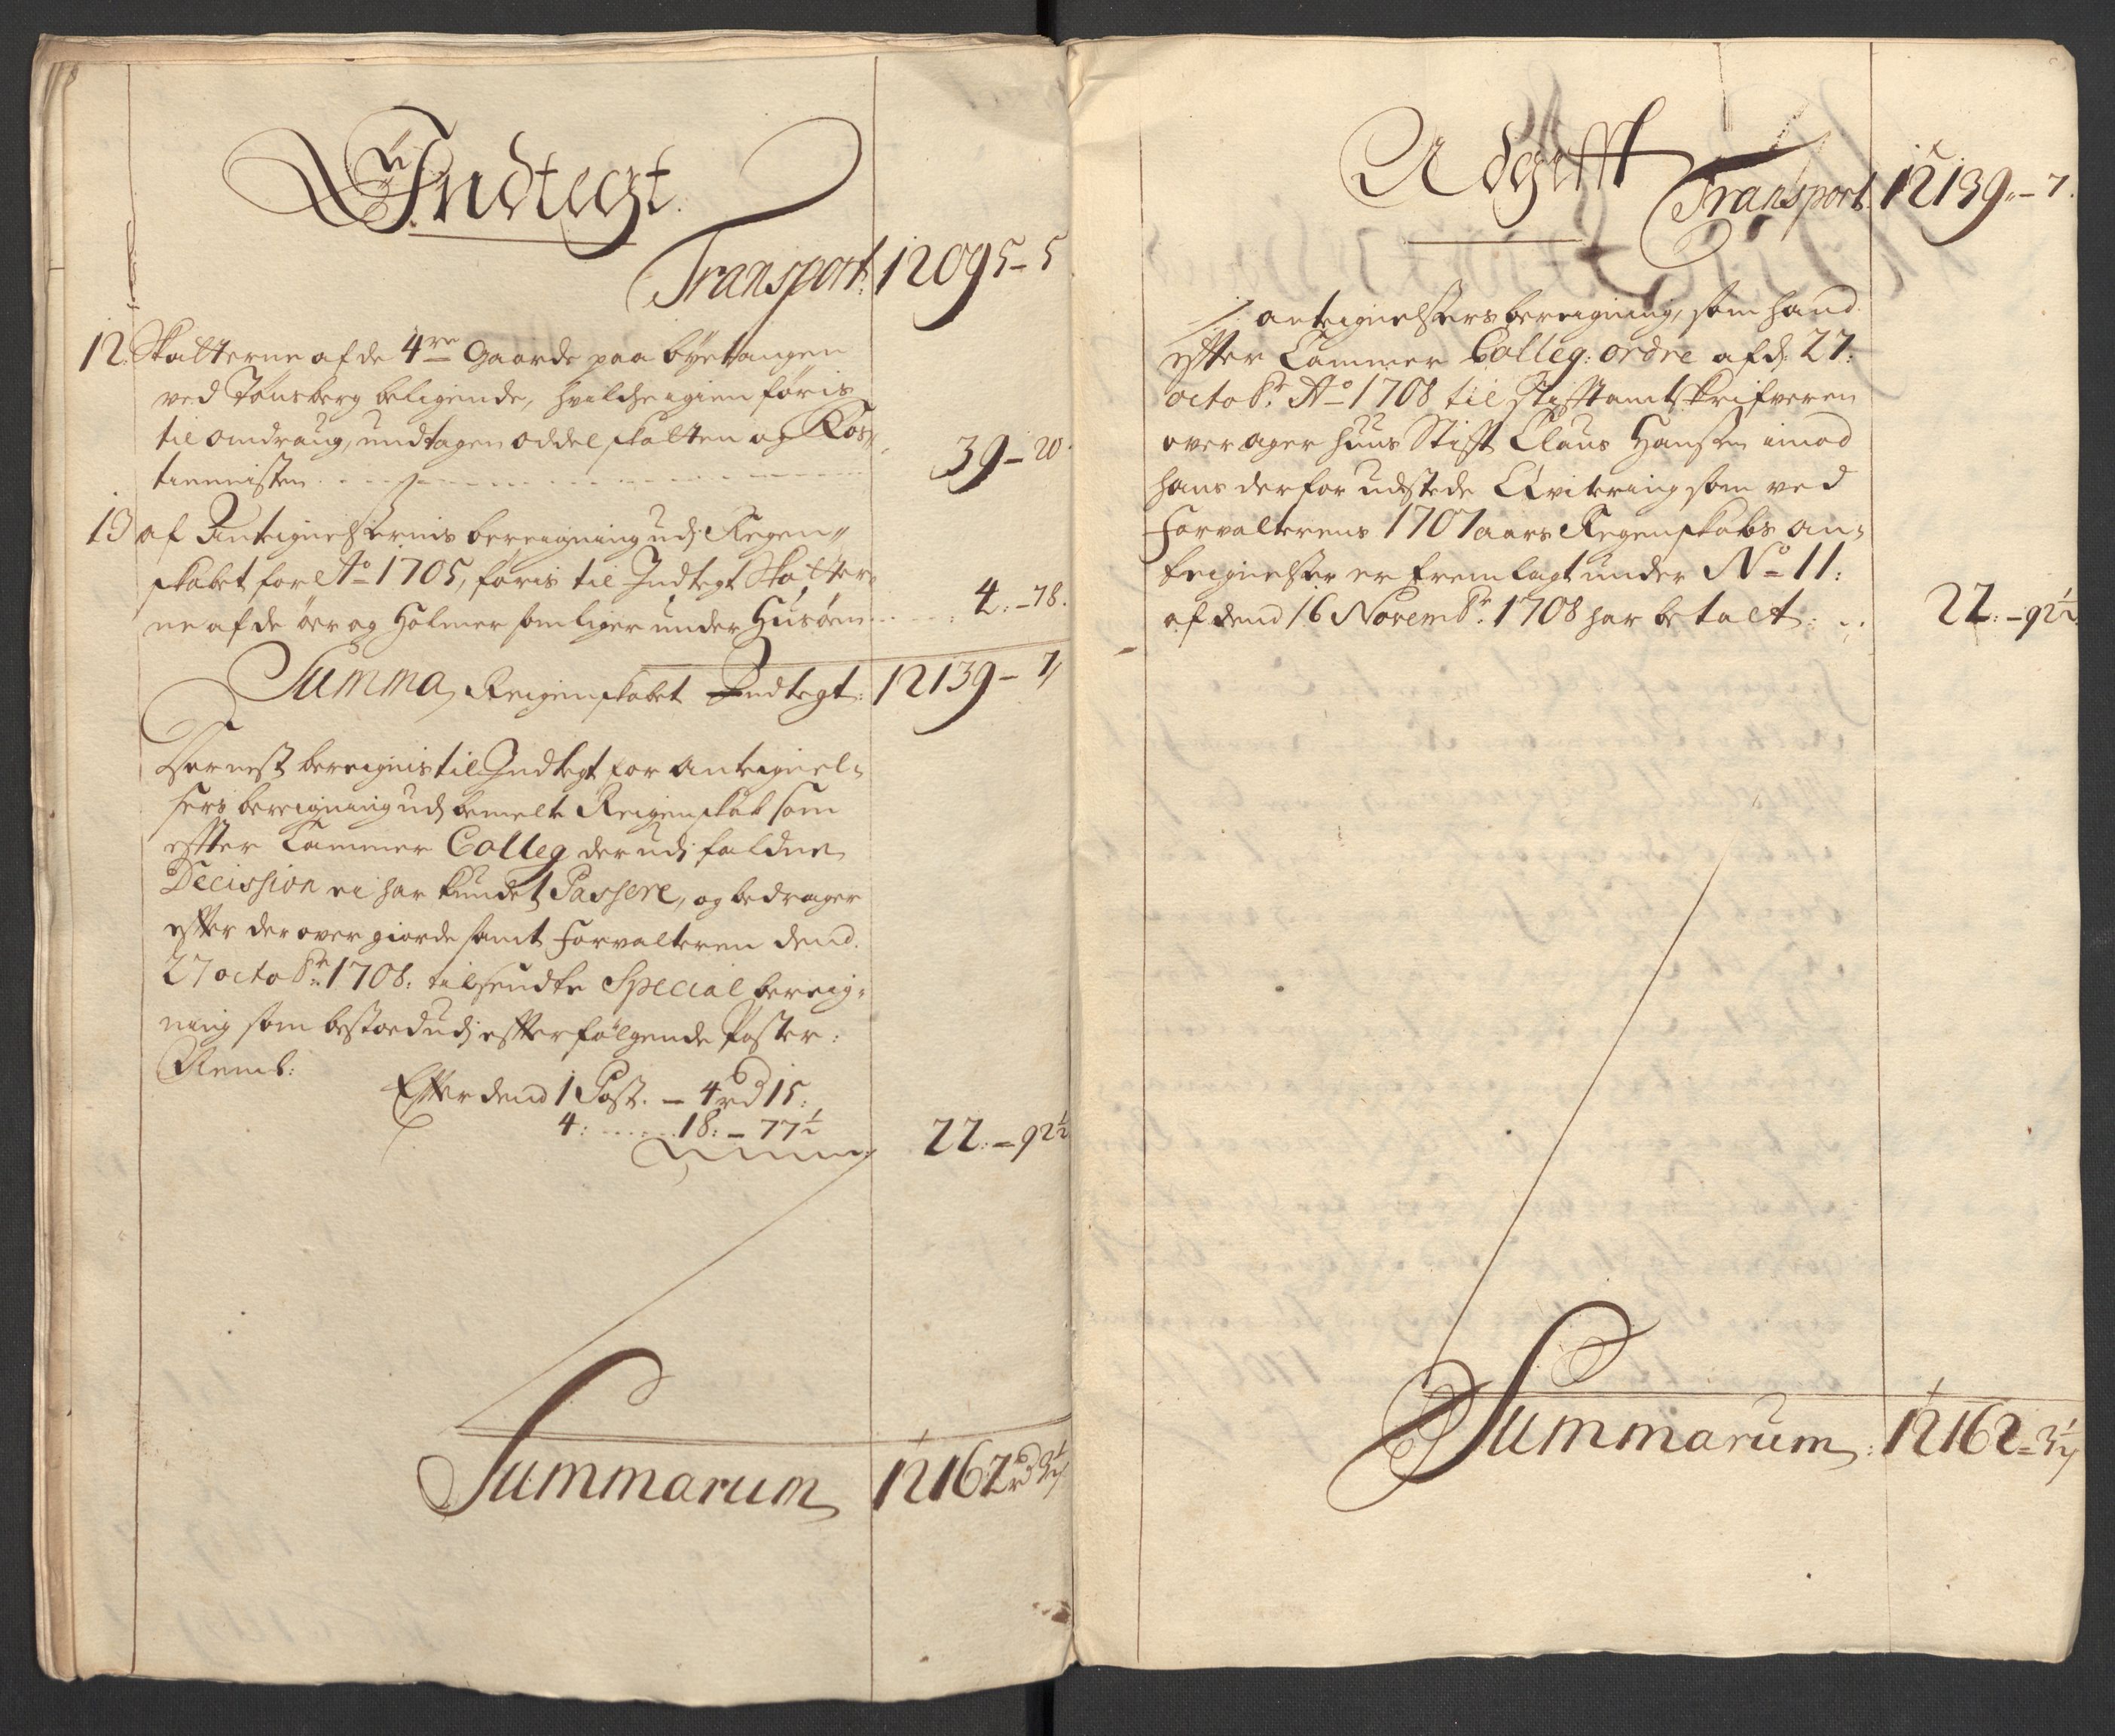 Indtegt.
Transport. 12095 - 5
12. Skatterne af de 4re Gaarde paa byetangen
ved Tønsberg beligende, hvilche igien føris
til omdraug, undtagen oddel skatten og Ros„
tiennisten . . . . . . 39 - 20.
13 af Anteignelsernis bereigning udj Regen„
skabet for Ao 1705, føris til Indtegt Skatter„
ne af de øer og Holmer som liger under Husøen . . . . 4: - 78.
Summa, Reigenskabet Indtegt: 12139 - 7
Dernest bereignis til Indtegt for anteignel„
sers bereigning udj bemelte Reigenskab som
effter Cammer Colleg der udj faldne
Decission ei har kundet Passere, og bedrager
effter der over giorde samt forvalteren dend
27 octobr: 1708: tilsendte Special bereig„
ning som bestoed udj effterfølgende Poster:
Neml:
Effter dend 1 Post. - 4 rd 15:
4: . . . . . 18: - 77½
22: - 92½
Summarum 12162 rd 3½
Udgifft
Transport. 12139„ - 7.
anteignelsers bereigning, som hand
effter Cammer Colleg: ordre af d: 27:
octobr: Ao 1708 til Stifftamtskrifveren
over ager huus Stift Claus Hansen imod
hans derfor udstede Qvitering som ved
Forvalterens 1707 aars Regenskabs an„
teignelser er fremlagt under No 11:
af dend 16 Novembr: 1708 har betalt: . . 22: - 92½
Summarum: 12162 - 3½